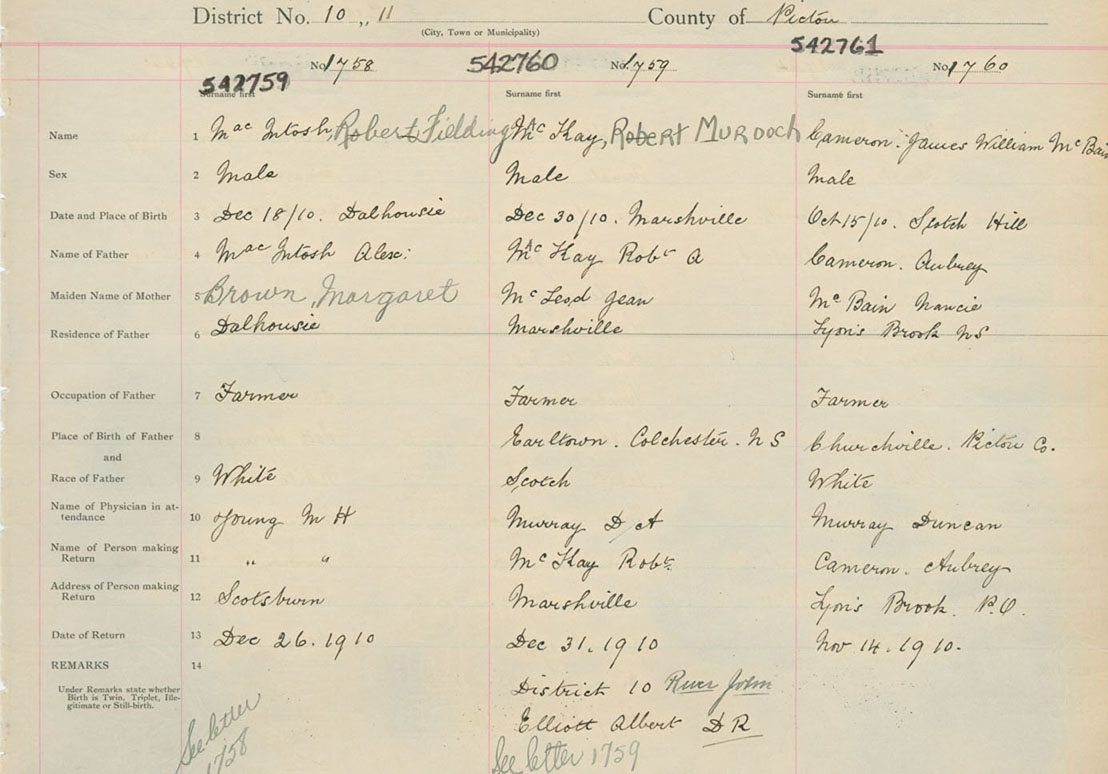 District No. 10 ,, 11 County of Pictou
(City, Town or Municipality)
542759 No. 1758 542760 No. 1759 542761 No. 1760
Surname first Surname first Surname first
Name 1 Mac Intosh, Robert Fielding Mc Kay, Robert Murdoch Cameron. James William Mc Bain
Sex 2 Male Male Male
Date and Place of Birth 3 Dec 18/10. Dalhousie Dec 30/10. Marshville Oct 15/10. Scotch Hill
Name of Father 4 Mac Intosh Alex: Mc Kay Robt A Cameron. Aubrey
Maiden Name of Mother 5 Brown, Margaret Mc Leod Jean Mc Bain Nancie
Residence of Father 6 Dalhousie Marshville Lyon's Brook NS
Occupation of Father 7 Farmer Farmer Farmer
Place of Birth of Father 8 Earltown. Colchester. NS Churchville. Pictou Co.
and
Race of Father 9 White Scotch White
Name of Physician in at-
tendance 10 Young M H Murray D A Murray Duncan
Name of Person making
Return 11 " " Mc Kay Robt. Cameron. Aubrey
Address of Person making
Return 12 Scotsburn Marshville Lyon's Brook. P.O.
Date of Return 13 Dec 26. 1910 Dec 31. 1910 Nov 14. 1910.
REMARKS 14
Under Remarks state whether
Birth is Twin, Triplet, Ille-
gitimate or Still-birth.
District 10 River John
Elliott Albert DR
See letter
1758
See letter 1759